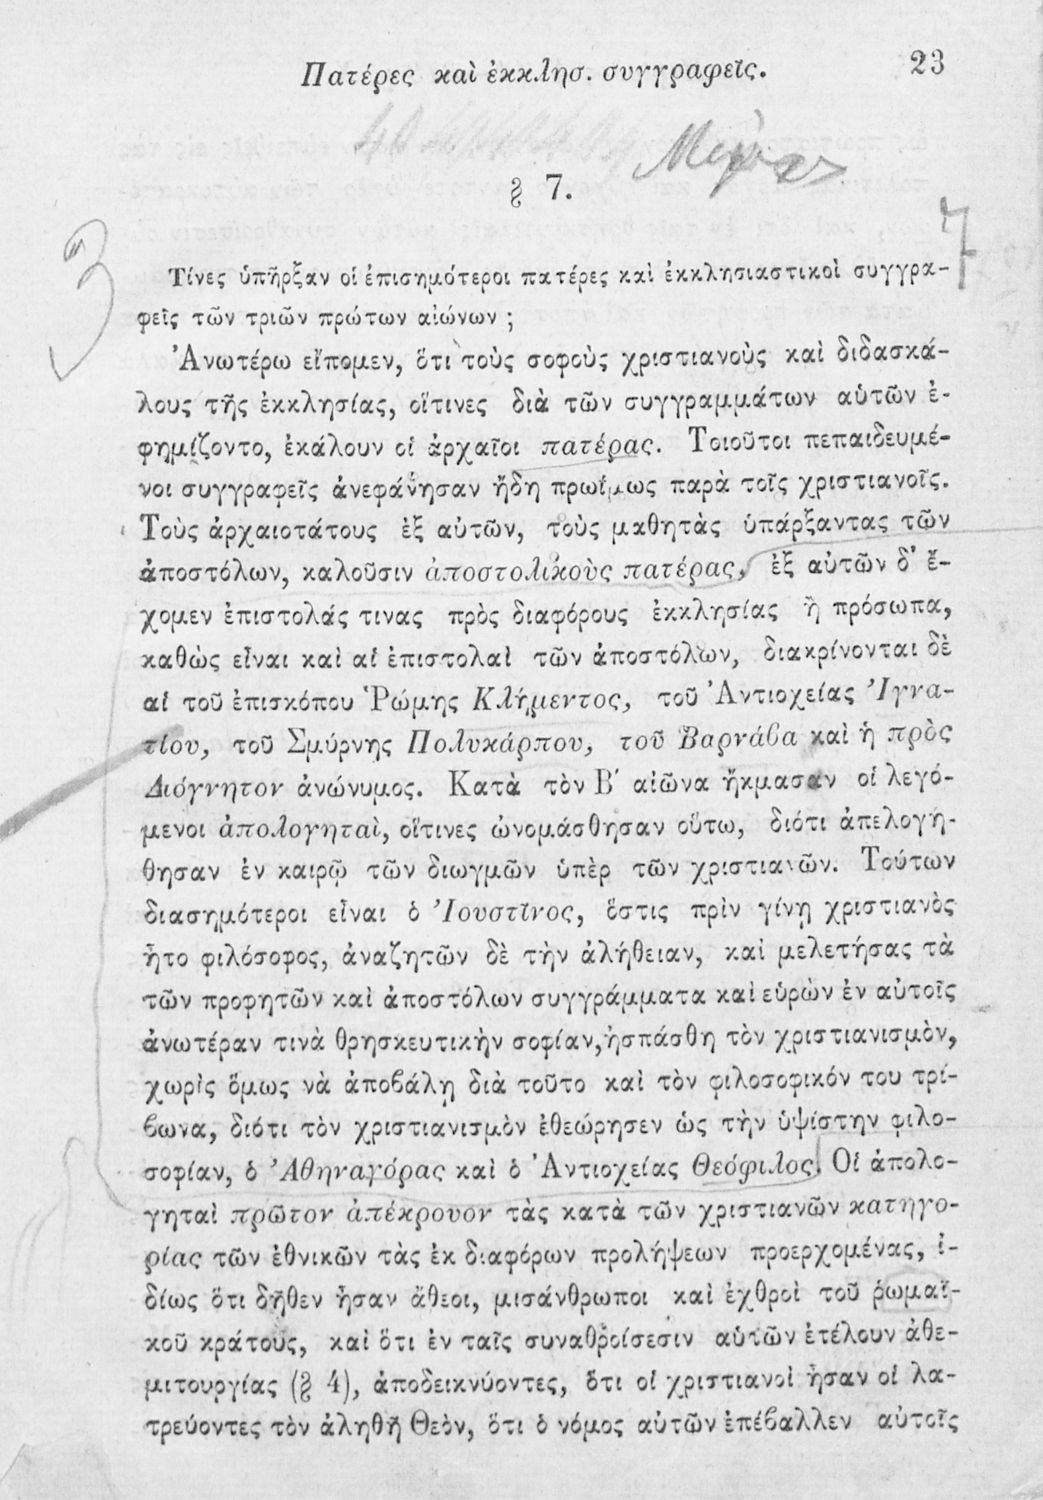 Πατέρες καὶ ἐκκλησ. συγγραφεῖς. 23
§ 7.
7
3
Τίνες ὑπῆρξαν οἱ ἐπισημότεροι πατέρες καὶ ἐκκλησιαστικοὶ συγγρα-
φεῖς τῶν τριῶν πρώτων αἰώνων ;
Ἀνωτέρω εἴπομεν, ὅτι τοὺς σοφοὺς χριστιανοὺς καὶ διδασκά-
λους τῆς ἐκκλησίας, οἵτινες διὰ τῶν συγγραμμάτων αὑτῶν ἐ-
φημίζοντο, ἐκάλουν οἱ ἀρχαῖοι πατέρας. Τοιοῦτοι πεπαιδευμέ-
νοι συγγραφεῖς ἀνεφάνησαν ἤδη πρωΐμως παρὰ τοῖς χριστιανοῖς.
Τοὺς ἀρχαιοτάτους ἐξ αὐτῶν, τοὺς μαθητὰς ὑπάρξαντας τῶν
ἀποστόλων, καλοῦσιν ἀποστολικοὺς πατέρας, ἐξ αὐτῶν δ' ἔ-
χομεν ἐπιστολάς τινας πρὸς διαφόρους ἐκκλησίας ἢ πρόσωπα,
καθὼς εἶναι καὶ αἱ ἐπιστολαὶ τῶν ἀποστόλων, διακρίνονται δὲ
αἱ τοῦ ἐπισκόπου Ῥώμης Κλήμεντος, τοῦ Ἀντιοχείας Ἰγνα-
τίου, τοῦ Σμύρνης Πολυκάρπου, τοῦ Βαρνάβα καὶ ἡ πρὸς
Διόγνητον ἀνώνυμος. Κατὰ τὸν Β' αἰῶνα ἤκμασαν οἱ λεγό-
μενοι ἀπολογηταὶ, οἵτινες ὠνομάσθησαν οὕτω, διότι ἀπελογή-
θησαν ἐν καιρῷ τῶν διωγμῶν ὑπὲρ τῶν χριστιανῶν. Τούτων
διασημότεροι εἶναι ὁ Ἰουστῖνος, ὅστις πρὶν γίνῃ χριστιανὸς
ἦτο φιλόσοφος, ἀναζητῶν δὲ τὴν ἀλήθειαν, καὶ μελετήσας τὰ
τῶν προφητῶν καὶ ἀποστόλων συγγράμματα καὶ εὑρὼν ἐν αὐτοῖς
ἀνωτέραν τινὰ θρησκευτικὴν σοφίαν, ἠσπάσθη τὸν χριστιανισμὸν,
χωρὶς ὅμως νὰ ἀποβάλῃ διὰ τοῦτο καὶ τὸν φιλοσοφικόν του τρί-
βωνα, διότι τὸν χριστιανισμὸν ἐθεώρησεν ὡς τὴν ὑψίστην φιλο-
σοφίαν, ὁ Ἀθηναγόρας καὶ ὁ Ἀντιοχείας Θεόφιλος. Οἱ ἀπολο-
γηταὶ πρῶτον ἀπέκρουον τὰς κατὰ τῶν χριστιανῶν κατηγο-
ρίας τῶν ἐθνικῶν τὰς ἐκ διαφόρων προλήψεων προερχομένας, ἰ-
δίως ὅτι δῆθεν ἦσαν ἄθεοι, μισάνθρωποι καὶ ἐχθροὶ τοῦ ῥωμαϊ-
κοῦ κράτους, καὶ ὅτι ἐν ταῖς συναθροίσεσιν αὑτῶν ἐτέλουν ἀθε-
μιτουργίας (§ 4), ἀποδεικνύοντες, ὅτι οἱ χριστιανοὶ ἦσαν οἱ λα-
τρεύοντες τὸν ἀληθῆ Θεὸν, ὅτι ὁ νόμος αὐτῶν ἐπέβαλλεν αὐτοῖς